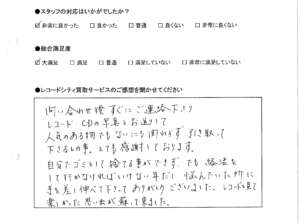 ●スタッフの対応はいかがでしたか？
☑非常に良かった □良かった □普通 □良くない □非常に良くない
●総合満足度
☑大満足 □満足 □普通 □満足していない □非常に満足していない
●レコードシティ買取サービスのご感想を聞かせてください
問い合わせ後すぐにご連絡下さり
レコード・CDの写真をお送りして
人気のある物でもないにも関わらず引き取って
下さるとの事、とても感謝しております。
自分でゴミとして捨てる事ができず、でも終活を
して行かなければいけない年だし、悩んでいた所に
手を差し伸べて下さってありがとうございました。レコードを見て
楽しかった思い出が蘇って来ました。